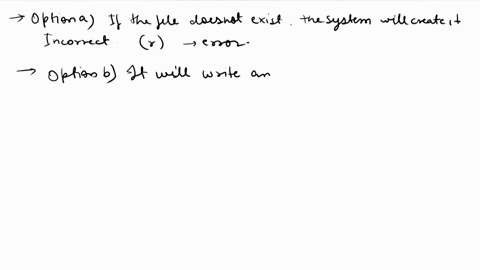 → Option a) If the file does not exist, the system will create it
Incorrect. (r) → error.
→ Option b) It will write an